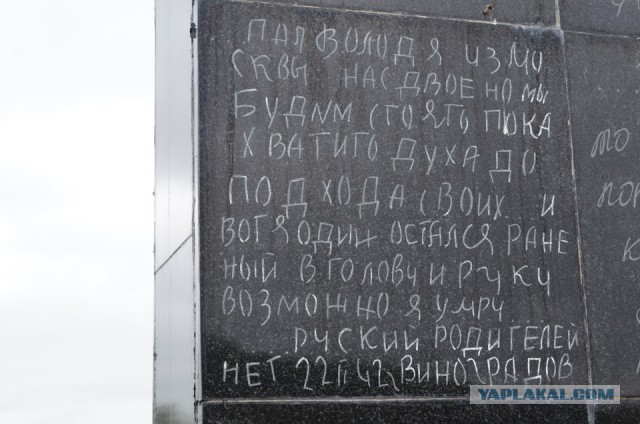 ПАЛ ВОЛОДЯ ИЗ МО
СКВЫ НАС ДВОЕ НО МЫ
БУДИМ СТОЯТЬ ПОКА
ХВАТИТ ДУХА ДО
ПОДХОДА СВОИХ И
ВОТ Я ОДИН ОСТАЛСЯ РАНЕ
НЫЙ В ГОЛОВУ И РУКУ
ВОЗМОЖНО Я УМРУ
РУСКИЙ РОДИТЕЛЕЙ
НЕТ 22 II 42 ВИНОГРАДОВ
то
YAPLAKAL.COM